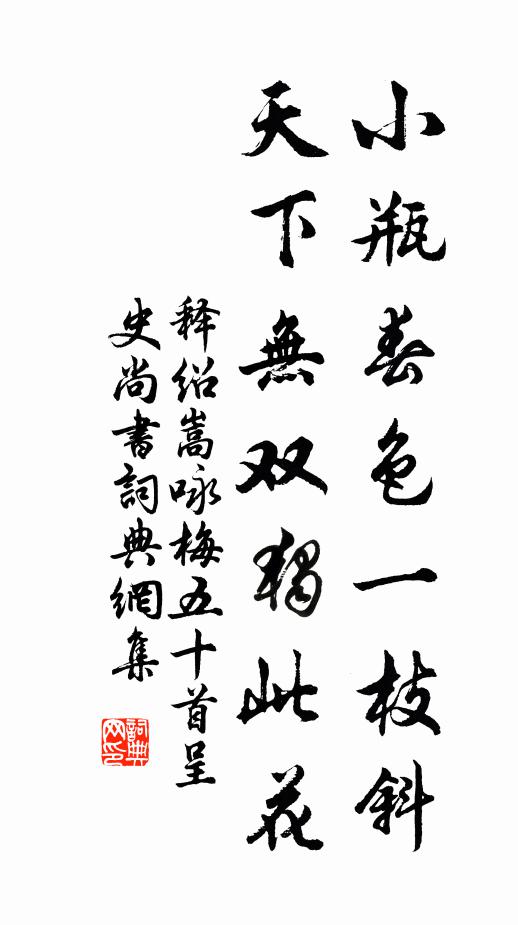 小瓶春色一枝斜
天下無双獨此花
释绍嵩咏梅五十首呈
史尚書詞典網集
詞典
网印